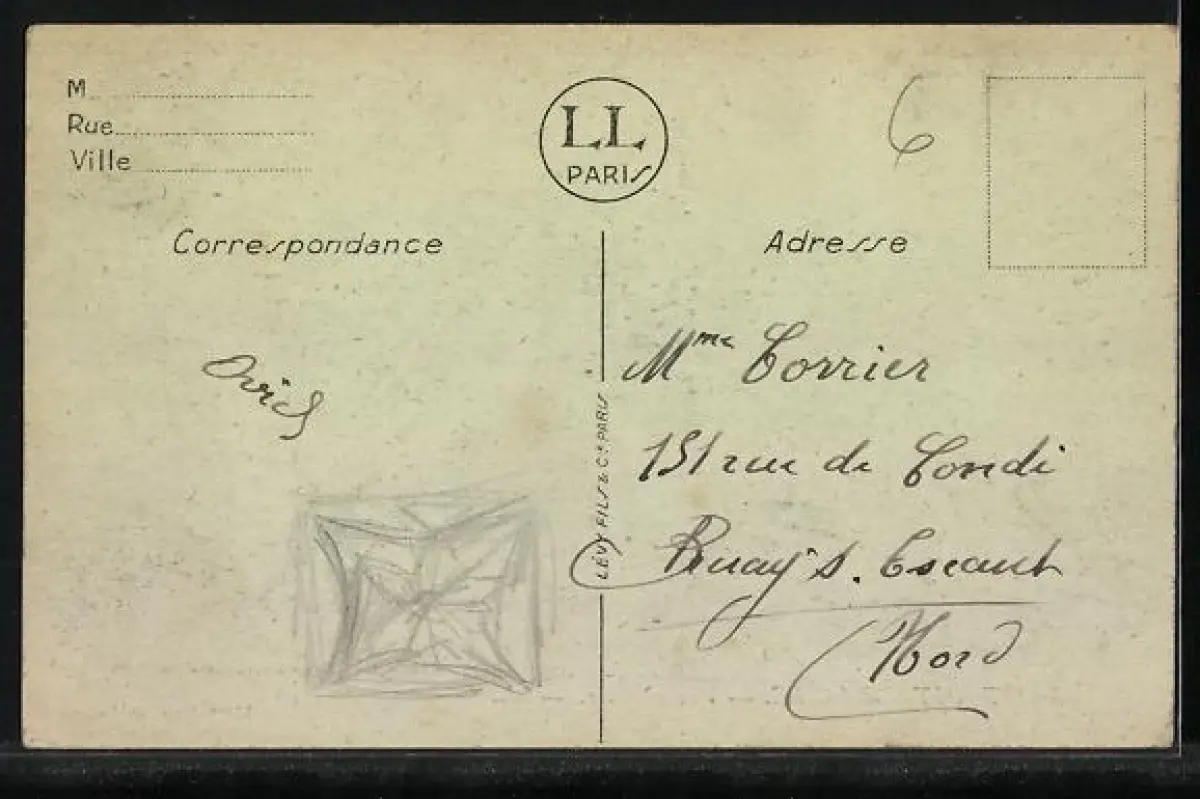 M
Rue
Ville
LL
PARIS
6
Correspondance
Adresse
LÉVY FILS & Cie PARIS
Mme Corrier
151 rue de Condé
Bruay s. Escaut
Nord